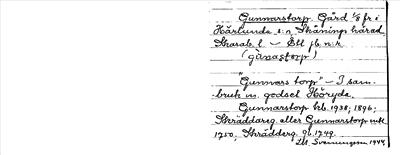 Gunnarstorp. Gård 1/8 fr i
Härlunda s:n Skånings härad
Skarab. l. – Ett jb. n:r
(gùnastorp)
"Gunnars torp" – I sam-
bruk m. godset Höryda.
Gunnarstorp kb. 1938; 1896;
Skräddareg. eller Gunnarstorp
1750, Skrädderg. jb. 1749.
Svenningsson 1944